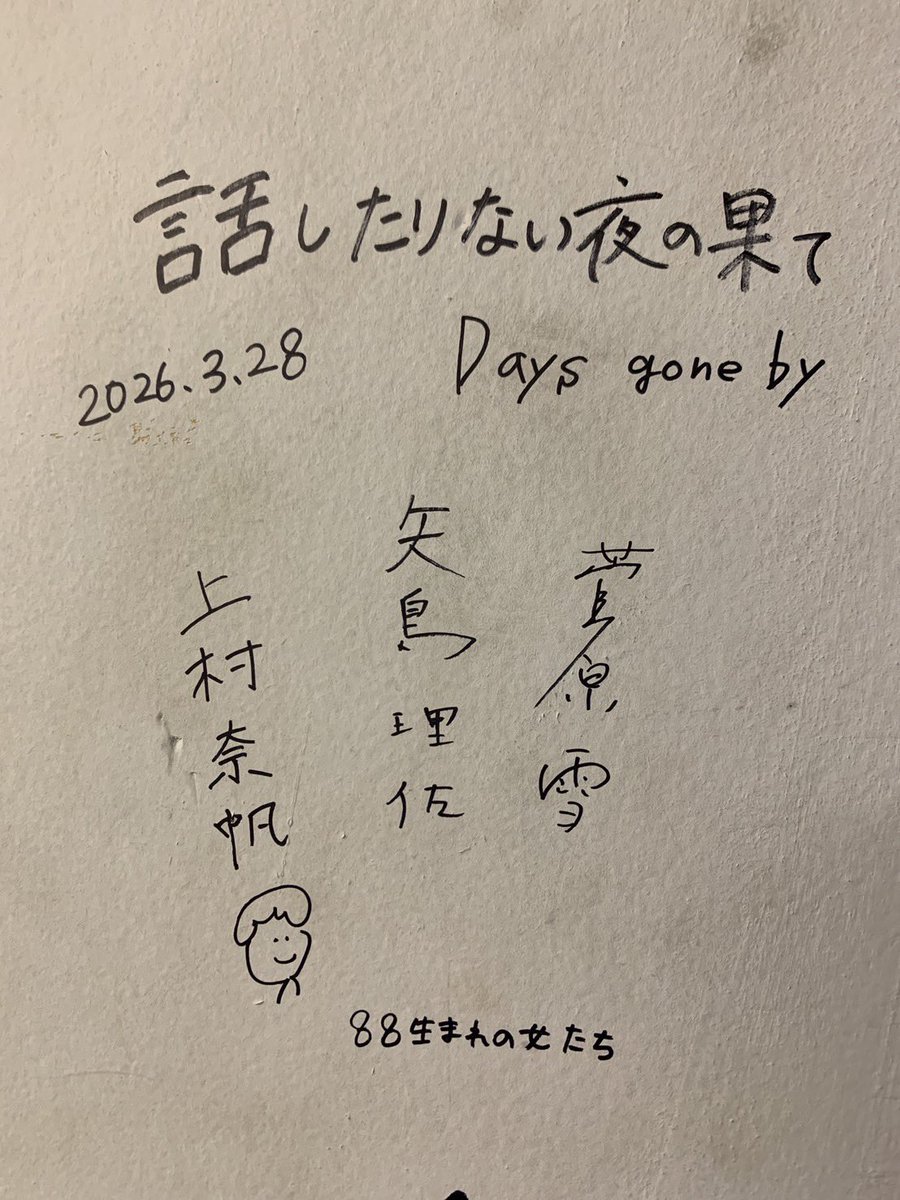 話したりない夜の果て
2026.3.28
Days gone by
萱原雪
矢島理佐
上村奈帆
88生まれの女たち